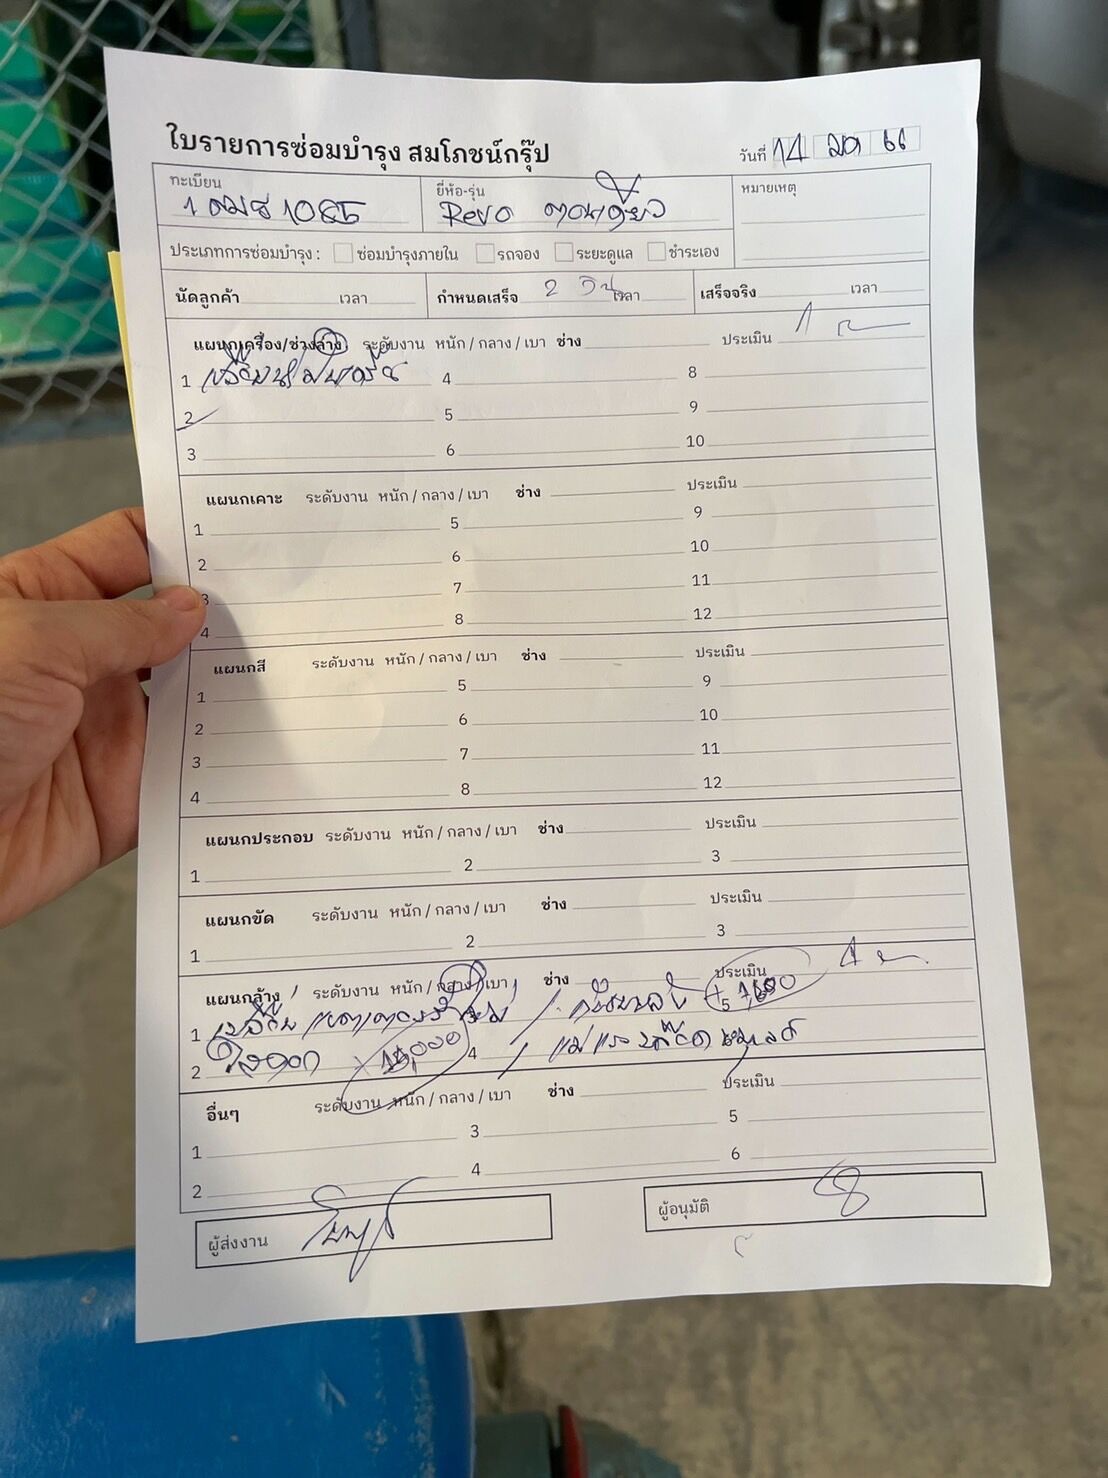 ใบรายการซ่อมบำรุง สมโภชน์กรุ๊ป
วันที่ 14 มค 66
ทะเบียน ยี่ห้อ-รุ่น หมายเหตุ
1 ฒช 1085 Revo ตอนเดียว
ประเภทการซ่อมบำรุง : ซ่อมบำรุงภายใน รถจอง ระยะดูแล ชำระเอง
นัดลูกค้า เวลา กำหนดเสร็จ 2 วัน เวลา เสร็จจริง เวลา
แผนกเครื่อง/ช่วงล่าง ระดับงาน หนัก / กลาง / เบา ช่าง ประเมิน 1
1 เปลี่ยน 4 8
2 5 9
3 6 10
แผนกเคาะ ระดับงาน หนัก / กลาง / เบา ช่าง ประเมิน
1 5 9
2 6 10
3 7 11
4 8 12
แผนกสี ระดับงาน หนัก / กลาง / เบา ช่าง ประเมิน
1 5 9
2 6 10
3 7 11
4 8 12
แผนกประกอบ ระดับงาน หนัก / กลาง / เบา ช่าง ประเมิน
1 2 3
แผนกขัด ระดับงาน หนัก / กลาง / เบา ช่าง ประเมิน
1 2 3
แผนกล้าง ระดับงาน หนัก / กลาง / เบา ช่าง ประเมิน
1 เปลี่ยน 3 5
2 15,000 4
อื่นๆ ระดับงาน หนัก / กลาง / เบา ช่าง ประเมิน
1 3 5
2 4 6
ผู้ส่งงาน ผู้อนุมัติ